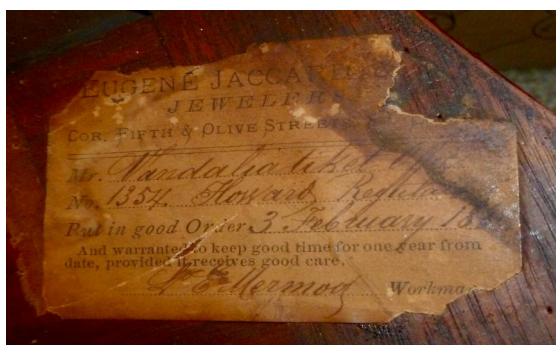 EUGENE JACCARD
JEWELERS
COR. FIFTH & OLIVE STREETS
Mr. Vandalia ticket
No. 1354. Howard Regulator
Put in good Order 3 February 18
And warranted to keep good time for one year from
date, provided it receives good care.
Mermod Workman